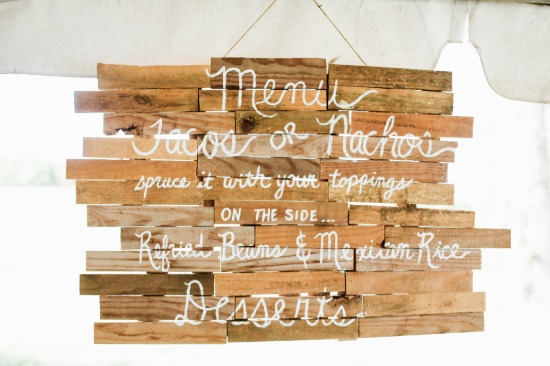 Menu
Tacos or Nachos
spruce it with your toppings
ON THE SIDE...
Refried Beans & Mexican Rice
Desserts